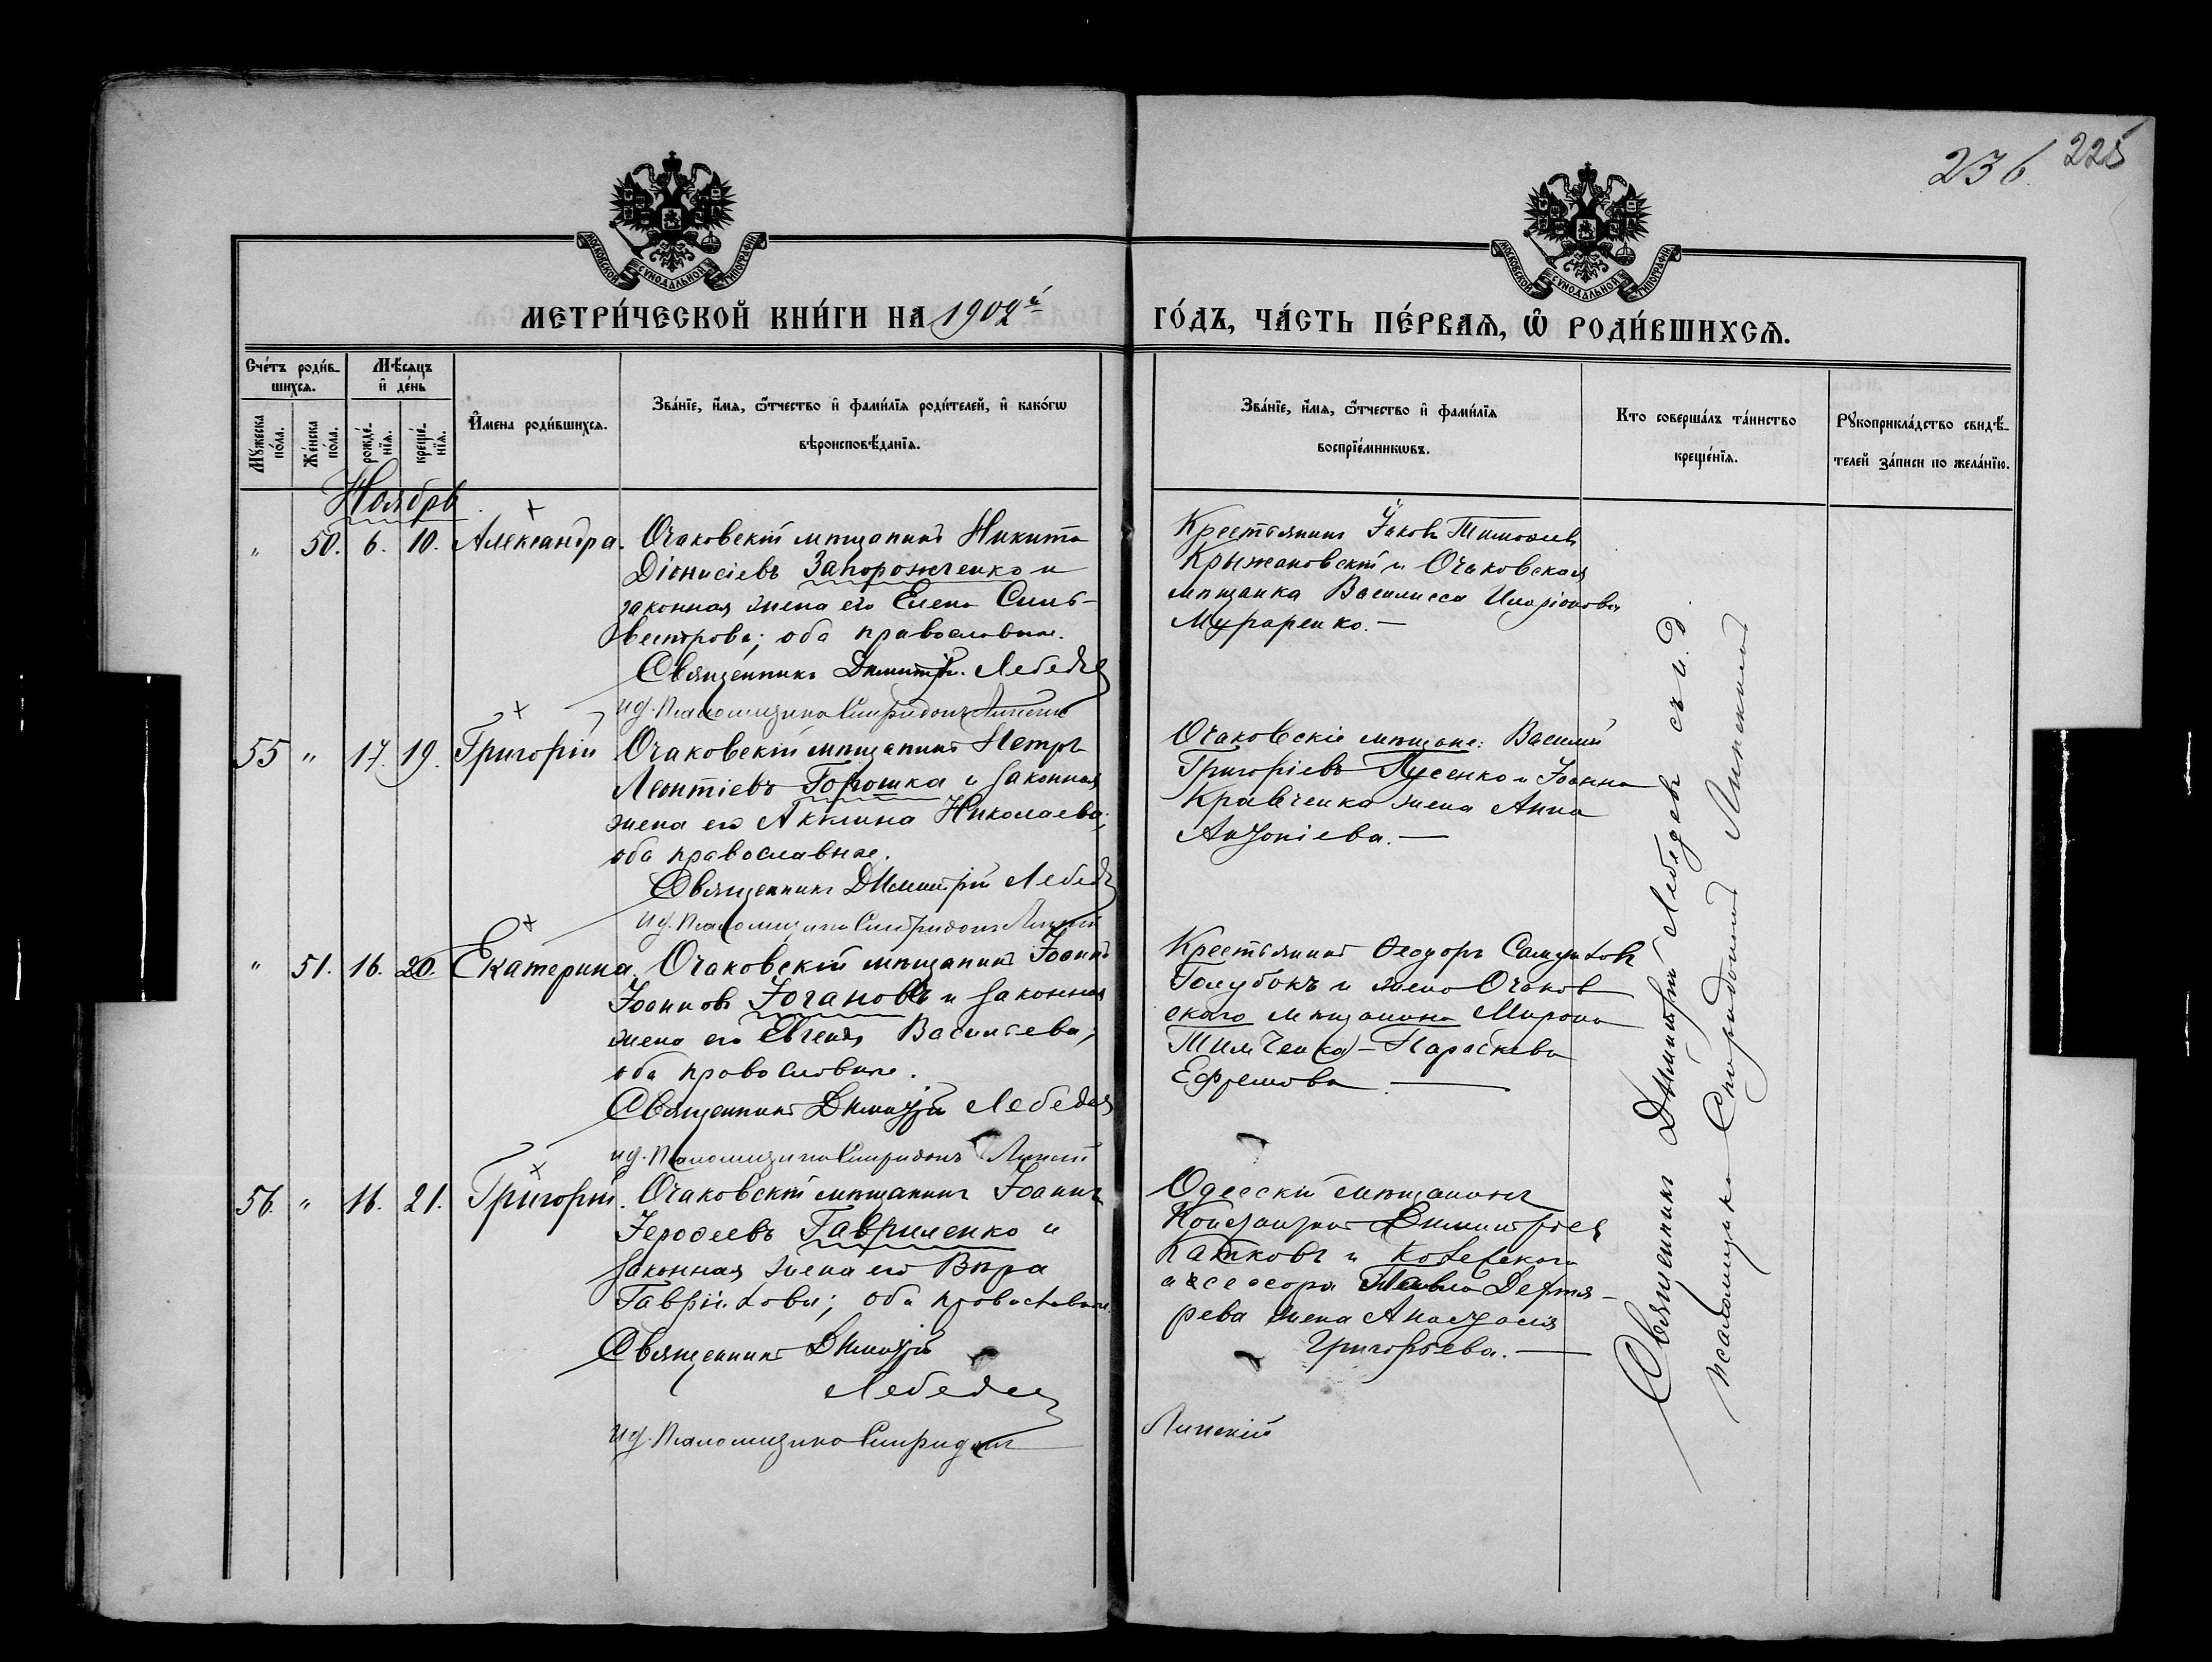 236. 225
МОСКОВСКОЙ СѴНОДАЛЬНОЙ ТИПОГРАФІИ
МОСКОВСКОЙ СѴНОДАЛЬНОЙ ТИПОГРАФІИ
МЕТРИ́ЧЕСКОЙ КНИ́ГИ НА 1902й ГО́ДЪ, ЧА́СТЬ ПЕ́РВАѦ, Ѡ҆ РОДИ́ВШИХСѦ.
Сче́тъ роди́в-
шихсѧ.
Мѣ́сяцъ
и҆ де́нь
Мꙋ́жеска по́ла.
Же́нска по́ла.
рожде́-
нїѧ.
креще́-
нїѧ.
И҆мена роди́вшихсѧ.
Зва́нїе, и҆́мѧ, ѻ҆́тчество и҆ фами́лїѧ роди́телей, и҆ како́гѡ
вѣроисповѣ́данїѧ.
Зва́нїе, и҆́мѧ, ѻ҆́тчество и҆ фами́лїѧ
воспрїе́мникѡвъ.
Кто соверша́лъ та́инство
креще́нїѧ.
Рꙋкоприкла́дство свидѣ́-
телей за́писи по жела́нїю.
Ноябрь
" 50. 6. 10. Александра. Очаковскій мѣщанинъ Никита
Діонисіевъ Запорожченко и
законная жена его Елена Силь-
вестрова; оба православные.
Священникъ Димитрій Лебедевъ
ид. Псаломщика Спиридонъ Липскій
Крестьянинъ Іаковъ Тимофеевъ
Крыжановскій и Очаковская
мѣщанка Василисса Иларіонова
Мураренко.—
55 " 17. 19. Григорій Очаковскій мѣщанинъ Петръ
Леонтіевъ Горошка и законная
жена его Акилина Николаева;
оба православные.
Священникъ Димитрій Лебедевъ
ид. Псаломщика Спиридонъ Липскій
Очаковскіе мѣщане: Василій
Григоріевъ Лусенко и Іоанна
Кравченка жена Анна
Антоніева.—
" 51. 16. 20. Екатерина. Очаковскій мѣщанинъ Іоаннъ
Іоанновъ Югановъ и законная
жена его Евгенія Васильева;
оба православные.
Священникъ Димитрій Лебедевъ
ид. Псаломщика Спиридонъ Липскій
Крестьянинъ Ѳеодоръ Самуиловъ
Голубокъ и жена Очаков
скаго мѣщанина Мирона
Тимченка—Параскева
Ефремова—
56. " 16. 21. Григорій. Очаковскій мѣщанинъ Іоаннъ
Іероѳеевъ Гавриленко и
законная жена его Вѣра
Гавріилова; оба православные.
Священникъ Димитрій
Лебедевъ
ид. Псаломщика Спиридонъ
Липскій
Одесскій мѣщанинъ
Константинъ Димитріевъ
Катковъ и Колежскаго
ассесора Павла Дегтя-
рева жена Анастасія
Григорьева.—
Священникъ Димитрій Лебедевъ съ и. д.
псаломщика Спиридономъ Липскимъ